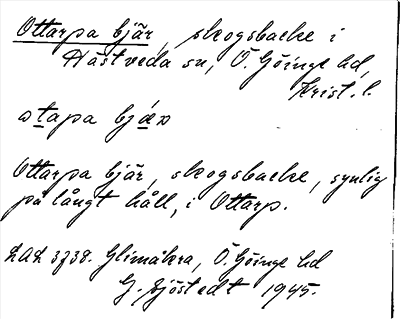 Ottarpa bjär, skogsbacke i
Hästveda sn, Ö. Göinge hd,
Krist. l.
ɷtapa bjæʀ
Ottarpa bjär, skogsbacke, synlig
på långt håll, i Ottarp.
LAL 3738. Glimåkra, Ö. Göinge hd
G. Sjöstedt 1945.